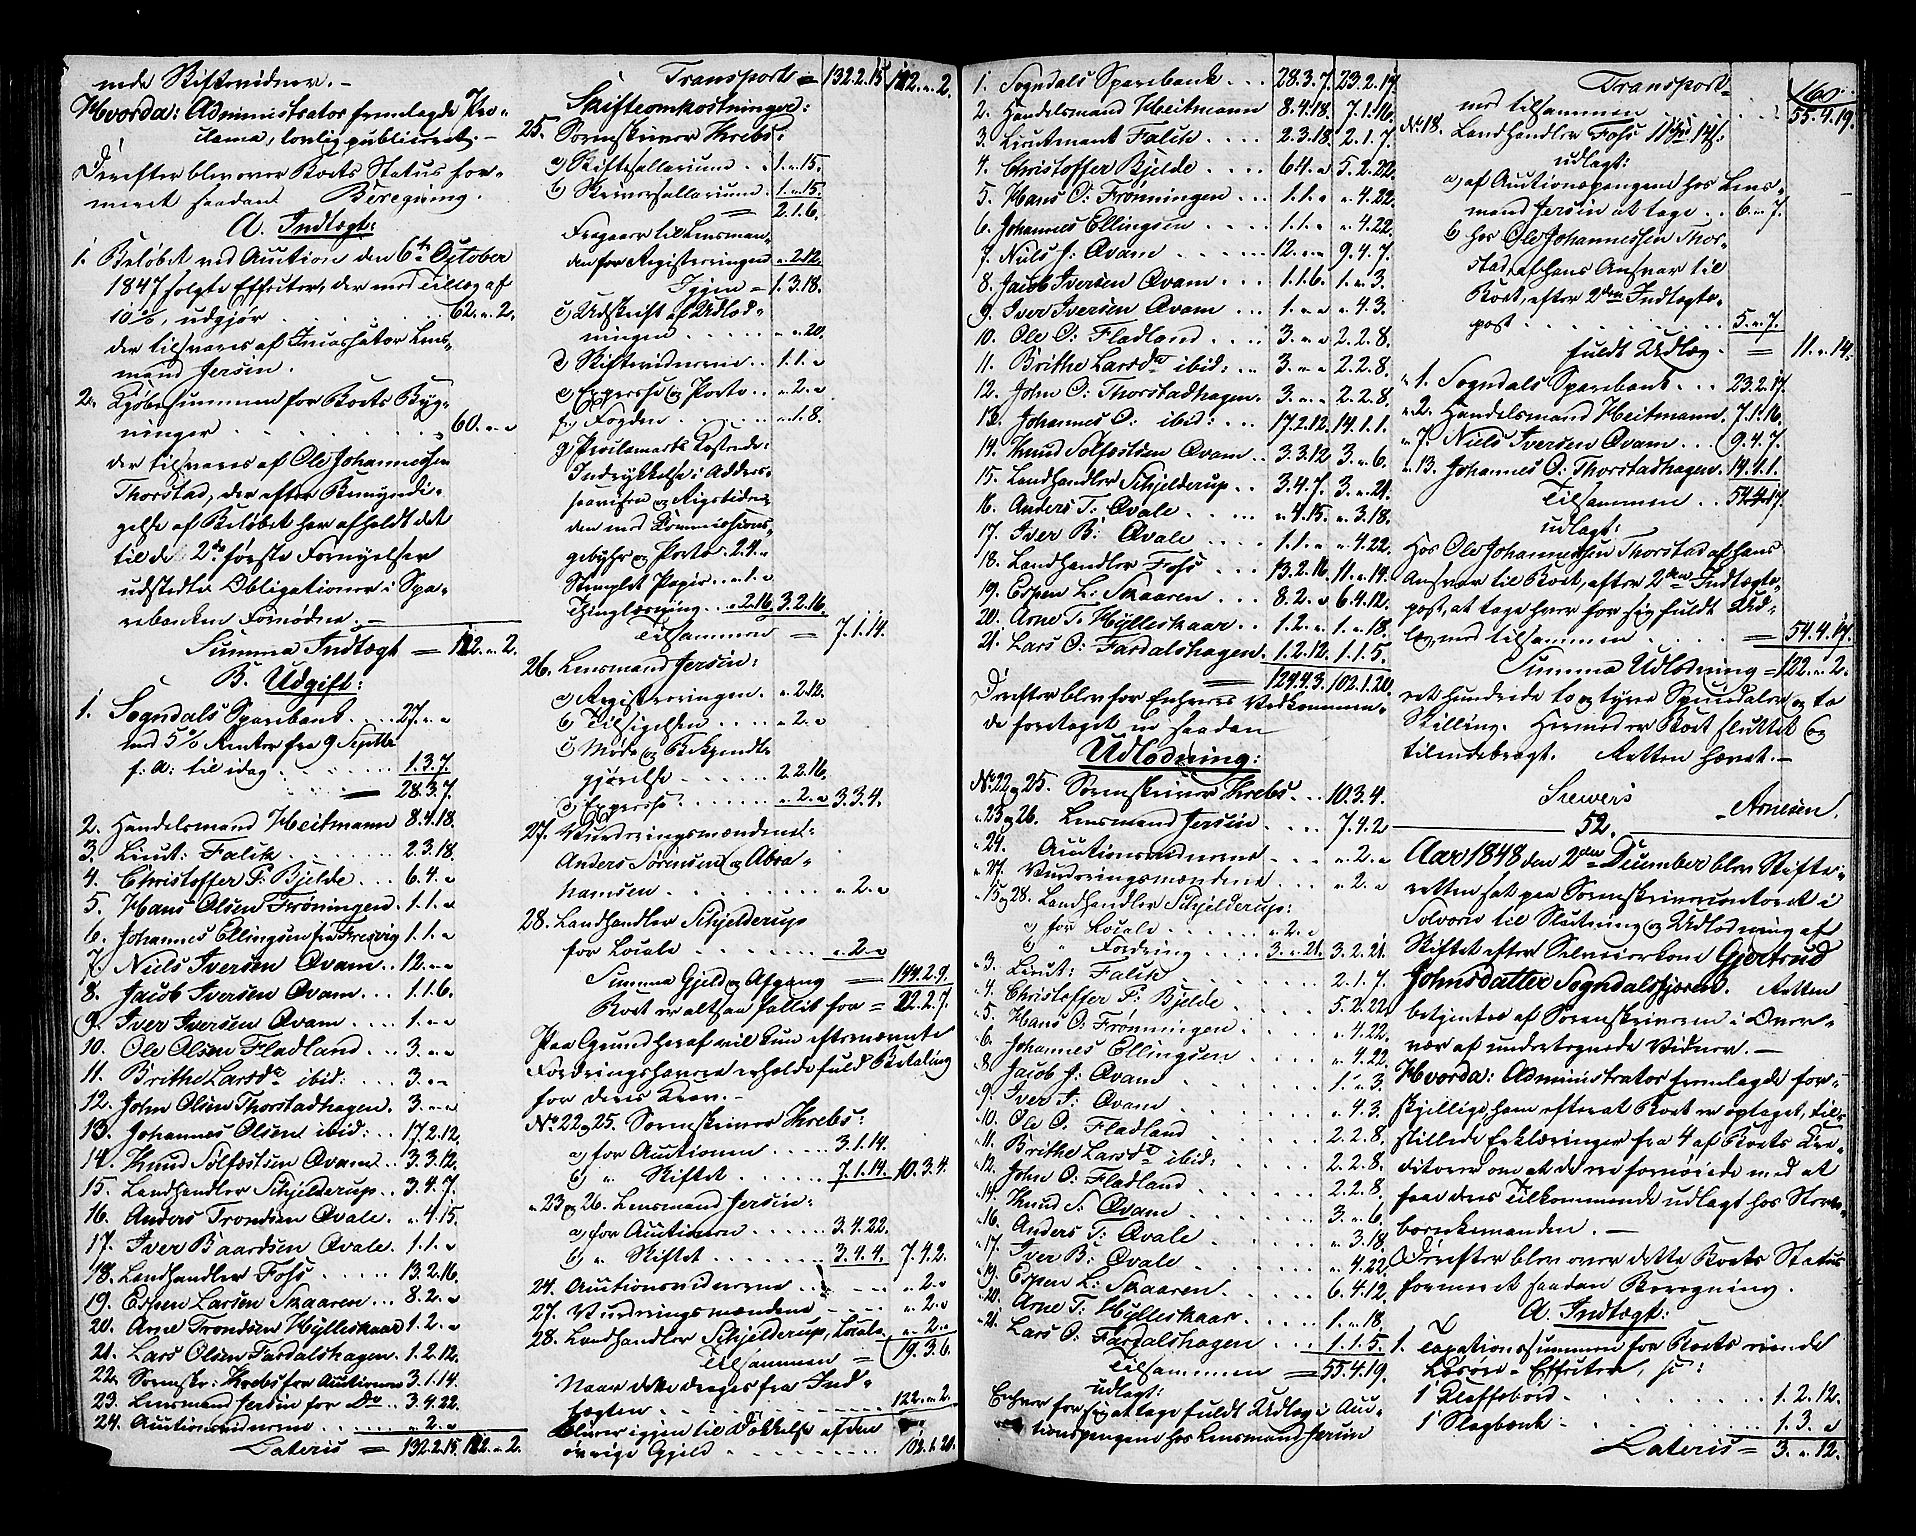 nede Skiftevidner. –
Hvorda: Administrator fremlagde Pro-
clama, lovlig publiceret. –
Derefter blev over Boets Status for-
meret saadan Beregning.
A. Indtægt:
1. Beløbet ved Auction den 6te October
1847 solgte Effecter, der med Tillæg af
10 %, udgjør . . . . 62. „ 2.
der tilsvares af Incassator Lens-
mand Jersin.
2. Kjøbesummen for Boets Byg-
ninger . . . . 60. „ „
der tilsvares af Ole Johannessen
Thorstad, der efter Bemyndi-
gelse af Beløbet har afholdt det
til de 2de første Fornyelser
udstedte Obligationer i Spa-
rebanken Fornødne. –
Summa Indtægt = 122. „ 2.
B. Udgift:
1. Sogndals Sparebank . . . 27. „ „
med 5 % Renter fra 9 Septbr
f: A: til idag . . . . 1.3.7.
28.3.7.
2. Handelsmand Heitmann 8.4.18.
3. Lieut: Falck . . . . 2.3.18.
4. Christoffer P: Bjelde . . . 6.4. „
5. Hans Olsen Frøningen . 1.1. „
6. Johannes Ellingsen fra Fresvig 1.1. „
7. Niels Iversen Qvam . . 12. „ „
8. Jacob Iversen Qvam . . . 1.1.6.
9. Iver Iversen Qvam . . . . 1. „ „
10. Ole Olsen Fladland . . . 3. „ „
11. Brithe Larsdr ibid: . . . . 3. „ „
12. John Olsen Thorstadhagen. 3. „ „
13. Johannes Olsen ibid: . . 17.2.12.
14. Knud Sølfestsen Qvam . . 3.3.12.
15. Landhandler Schjelderup . . 3.4.7.
16. Anders Trondsen Qvale. „ 4.15.
17. Iver Baardsen Qvale. 1.1. „
18. Landhandler Foss . . . . . 13.2.16.
19. Espen Larsen Skaaren . . . 8.2. „
20. Arne Trondsen Hylleskaar 1.2. „
21. Lars Olsen Fardalshagen. 1.2.12.
22. Sorenskr: Krebs for Auctionen 3.1.14.
23. Lensmand Jersin for Do . . 3.4.22.
24. Auctionsvidnerne . . . . „ 2. „
Lateris = 132.2.15. 122. „ 2.
Transport = 132.2.15. 122. „ 2.
Skifteomkostninger:
25. Sorenskriver Krebs:
a) Skiftesallarium . . 1. „ 15.
b) Skriversallarium . 1. „ 15.
2.1.6.
Fragaar til Lensman-
den for Registreringen „ 2.12.
Igjen = 1.3.18.
c) Udskrift af Udlod-
ningen . . . . „ „ 20.
d) Skiftevidnerne . . 1.1. „
e) Expresse og Porto . . „ 2. „
f) Fogden . . . . „ 1.8.
g) Proclamets Kostende:
Indrykkelse i Addres-
seavisen og Rigstiden-
den med Commissions-
gebyhr og Porto . 2.4. „
Stemplet Papir . . „ 1. „
Thinglæsning . . „ 2.16. 3.2.16.
Tilsammen = 7.1.14.
26. Lensmand Jersin:
a) Registreringen . „ 2.12.
b) Tilsigelsen . . . . „ 2. „
c) Møde og Bekjendt-
gjørelse . . . . . 2.2.16.
d) Expresse . . . . „ 2. „ 3.3.4.
27. Vurderingsmændene:
Anders Sørensen og Abra-
hamsen . . . . „ 2. „
28. Landhandler Schjelderup
for Locale . . . . „ 2. „
Summa Gjeld og Afgang = 144.2.9.
Boet er altsaa fallit for = 22.2.7.
Paa Grund heraf vil kun efternævnte
Fordringshavere erholde fuld Betaling
for deres Krav. –
No 22 og 25. Sorenskriver Krebs:
a) for Auctionen . . . 3.1.14.
b) „ Skiftet . . . . 7.1.14. 10.3.4.
„ 23 og 26. Lensmand Jersin:
a) for Auctionen . . . . 3.4.22.
b) „ Skiftet . . . . 3.3.4. 7.4.2.
24. Auctionsvidnerne . . . . „ 2. „
27. Vurderingsmændene . . . . „ 2. „
28. Landhandler Schjelderup, Locale „ 2. „
Tilsammen = 19.3.6.
Naar dette drages fra Ind-
tægten . . . . 122. „ 2.
bliver igjen til Dækkelse af den
øvrige Gjeld . . . . 102.1.20.
1. Sogndals Sparebank . . . 28.3.7. 23.2.17.
2. Handelsmand Heitmann 8.4.18. 7.1.16.
3. Lieutnant Falck . . . . 2.3.18. 2.1.7.
4. Christoffer Bjelde . . . . 6.4. „ 5.2.22.
5. Hans O: Frønningen . . 1.1. „ „ 4.22.
6. Johannes Ellingsen . . . . 1.1. „ „ 4.22.
7. Niels J: Qvam . . . . 12. „ „ 9.4.7.
8. Jacob Iversen Qvam . . . 1.1.6. 1. „ 3.
9. Iver Iversen Qvam . . . . 1. „ „ „ 4.3.
10. Ole O: Fladland . . . . 3. „ „ 2.2.8.
11. Brithe Larsdr ibid: . . . 3. „ „ 2.2.8.
12. John O: Thorstadhagen. 3. „ „ 2.2.8.
13. Johannes O: ibid: . . . 17.2.12. 14.1.1.
14. Knud Sølfestsen Qvam . . 3.3.12. 3. „ 6.
15. Landhandler Schjelderup . . 3.4.7. 3. „ 21.
16. Anders T: Qvale . . . . „ 4.15. „ 3.18.
17. Iver B: Qvale . . . . 1.1. „ „ 4.22.
18. Landhandler Foss . . . 13.2.16. 11. „ 14.
19. Espen L: Skaaren . . . . 8.2. „ 6.4.12.
20. Arne T: Hylleskaar . . 1.2. „ 1. „ 18.
21. Lars O: Fardalshagen. 1.2.12. 1.1.5.
124.4.3. 102.1.20.
Derefter blev for Enhvers Vedkommen-
de foretaget en saadan
Udlodning:
No 22 og 25. Sorenskriver Krebs . . . 10.3.4.
„ 23 og 26. Lensmand Jersin . . . . 7.4.2
„ 24. Auctionsvidnerne . . . „ 2. „
„ 27. Vurderingsmændene . . . . „ 2. „
„ 15 og 28. Landhandler Schjelderup:
a) for Locale . . . . „ 2. „
b) „ Fordring . . . . 3. „ 21. 3.2.21.
„ 3. Lieut: Falck . . . . 2.1.7.
„ 4. Christoffer P: Bjelde . . . . 5.2.22.
„ 5. Hans O: Frønningen . . . . „ 4.22.
„ 6. Johannes Ellingsen . . . . „ 4.22.
„ 8. Jacob J: Qvam . . . . 1. „ 3.
„ 9. Iver I: Qvam . . . . „ 4.3.
„ 10. Ole O: Fladland . . . . 2.2.8.
„ 11. Brithe Larsdr ibid: . . . . 2.2.8.
„ 12. John O: Fladland . . . . 2.2.8.
„ 14. Knud S: Qvam . . . . 3. „ 6.
„ 16. Anders T: Qvale . . . . „ 3.18.
„ 17. Iver B: Qvale . . . . „ 4.22.
„ 19. Espen L: Skaaren . . . . 6.4.12.
„ 20. Arne T: Hylleskaar . . . . 1. „ 18.
„ 21. Lars O: Fardalshagen . . . 1.1.5.
Tilsammen = 55.4.19.
udlagt:
Enhver for sig at tage fuldt Udlæg i Auc-
tionspengene hos Lensmand Jersin
160.
Transport
med tilsammen . . . 55.4.19.
No 18. Landhandler Foss
udlagt:
a) af Auctionspengene hos Lens-
mand Jersin at tage . . 6. „ 7.
b) hos Ole Johannessen Thor-
stad, af hans Ansvar til
Boet, efter 2den Indtægts-
post . . . . 5. „ 7.
fuldt Udlæg = 11. „ 14.
„ 1. Sogndals Sparebank . . . 23.2.17.
„ 2. Handelsmand Heitmann. 7.1.16.
„ 7. Niels Iversen Qvam . . . 9.4.7.
„ 13. Johannes O: Thorstadhagen. 14.1.1.
Tilsammen . . 54.4.17.
udlagt:
Hos Ole Johannessen Thorstad af hans
Ansvar til Boet, efter 2den Indtægts-
post, at tage hver for sig fuldt Ud-
læg med tilsammen . . . . = 54.4.17.
Summa Udlodning = 122. „ 2.
et hundrede to og tyve Speciedaler og to
Skilling. Hermed er Boet sluttet og
tilendebragt. Retten hævet. –
Siewers Arnesen.
52.
Aar 1848 den 2den December blev Skifte-
retten sat paa Sorenskrivercontoret i
Solvorn til Slutning og Udlodning af
Skiftet efter Selveierkone Gjertrud
Johnsdatter Sogndalsfjæren. Retten
betjentes af Sorenskriveren i Over-
vær af undertegnede Vidner. –
Hvorda: Administrator fremlagde for-
skjellige, ham efterat Boet er optaget, til-
stillede Erklæringer fra 4 af Boets Cre-
ditorer om at de ere fornøiede med at
faae deres Tilkommende udlagt hos Sterv-
boenkemanden. –
Derefter blev over dette Boets Status
formeret saadan Beregning.
A. Indtægt:
1. Taxationssummen for Boets eiende
Løsøre-Effecter, ɔ:
1 Klaffebord . . . . 1.2.12.
1 Slagbænk . . . . 1.3. „
Lateris = 3. „ 12.